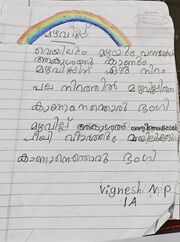 മഴവില്ല്
വെയിലും മഴയും വന്നാൽ
ആകാശത്ത് കാണും
മഴവില്ലിന് ഏഴു നിറം
പല നിറത്തിൽ മഴവില്ലിനെ
കാണാനെന്തൊരു ഭംഗി
മഴവില്ല് ആകാശത്ത്
പീലി വിടർത്തും മയിലുകൾ
കാണാനെന്തൊരു ഭംഗി
Vignesh N P
1A